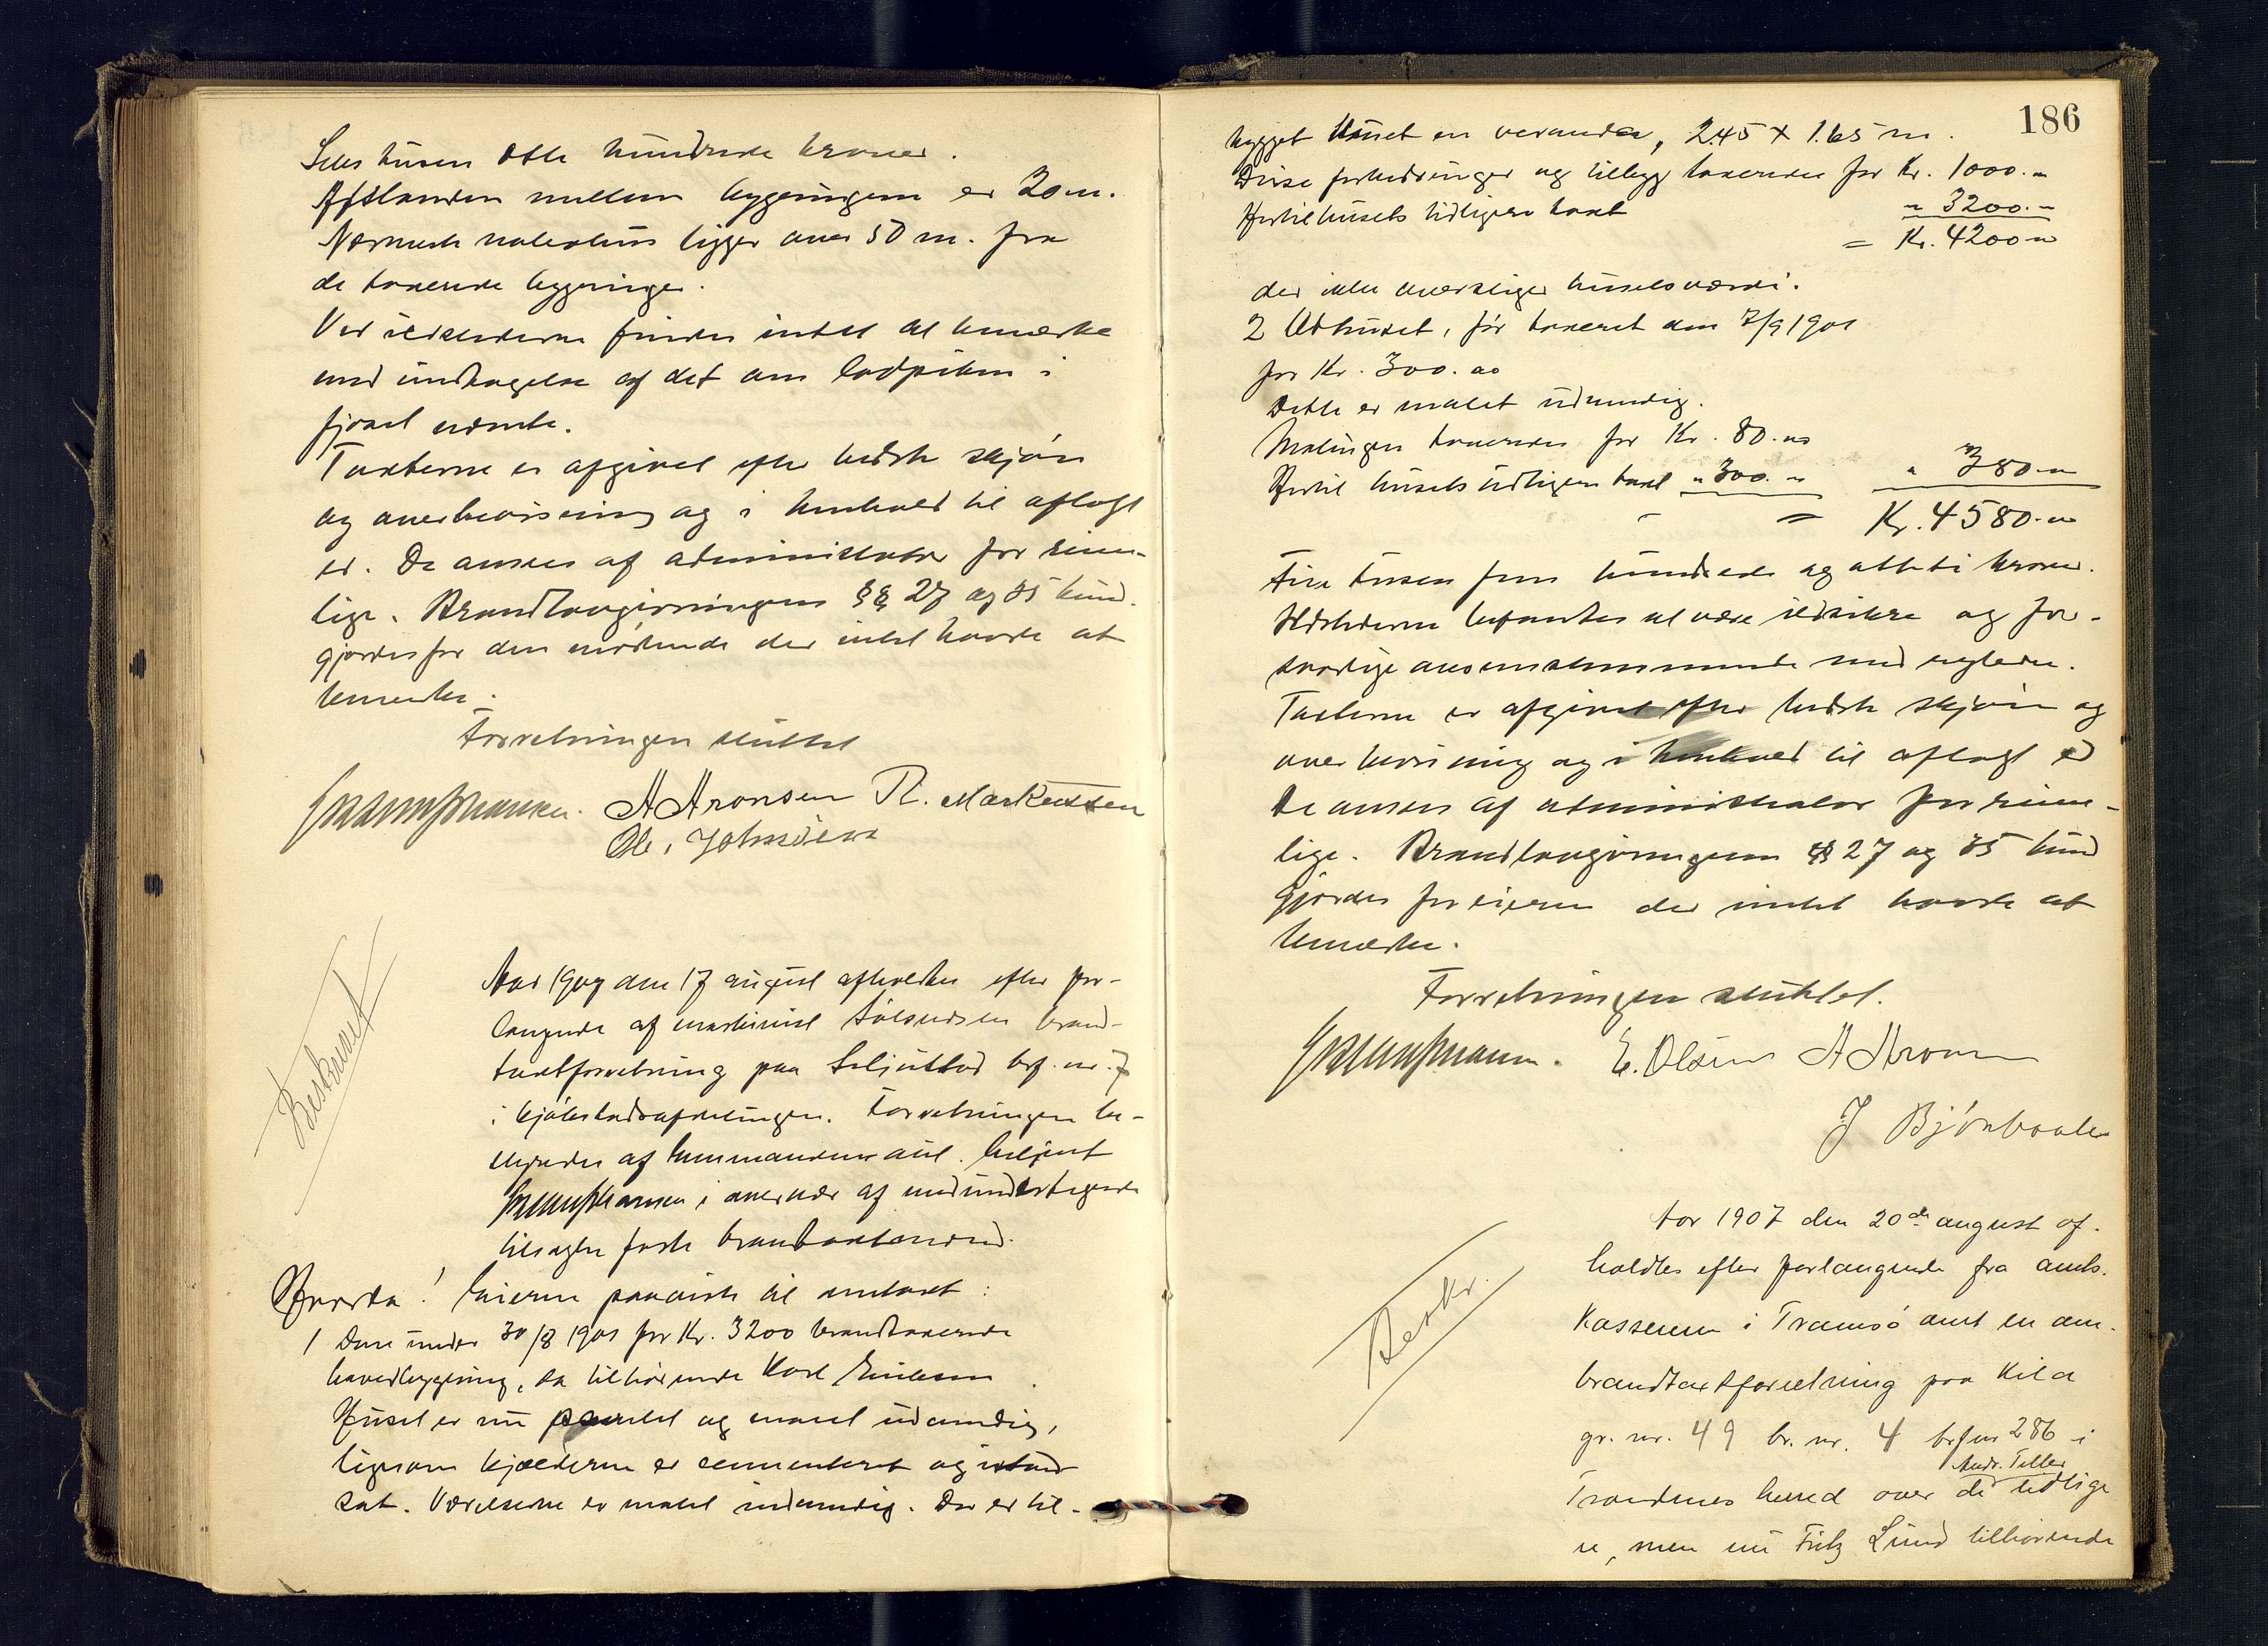 Seks tusen otte hundrede kroner.
Afstanden mellem bygningene er 20 m.
Nærmeste nabohus ligger over 50 m. fra
de takserede bygninger.
Ved ildstederne findes intet at bemærke
med undtagelse af det om lodpiben i
fjøset nævnte.
Taxterne er afgivet efter bedste skjøn
og overbevisning og i henhold til aflagt
ed. De ansees af administrator for rime-
lige. Brandlovgivningens §§ 27 og 35 kund-
gjordes for den mødende der intet havde at
bemerke.
Forretningen sluttet
A Aronsen R. Markussen
Ole Johnsen
Beskrevet
Aar 1907 den 17 august afholdtes efter for-
langende af maskinist brand-
taxtforretning paa brf. nr. 7
i kjøbstadsafdelingen. Forretningen be-
styredes af lensmandens aut. betjent
i overvær af medundertegnede
tilsagte faste brandtaxtmænd.
Hvorda! Eieren paaviste til omtaxt:
1 Den under 30/8 1901 for Kr. 3200 brandtakserede
hovedbygning, da tilhørende Karl
Huset er nu panelet og malet udvendig,
ligesom kjælderen er cementeret og istand
sat. Værelserne er malet indvendig. Der er til-
186
bygget huset en veranda, 2.45 x 1.65 m.
Disse forbedringer og tillegg takseredes for Kr. 1000.-
Hertil husets tidligere taxt " 3200.-
= Kr. 4200.-
der ikke overstiger husets værdi.
2 Udhuset, før takseret den 7/9 1901
for Kr. 300.00
Dette er malet udvendig.
Malingen takseredes for Kr. 80.00
Hertil husets tidligere taxt " 300.- " 380.-
= Kr. 4580.-
Fire tusen fem hundrede og otteti kroner.
Ildstederne befandtes at være ildsikre og for-
svarlige overensstemmende med reglerne.
Taxterne er afgivet efter bedste skjøn og
overbevisning og i henhold til aflagt ed
De ansees af administrator for rime-
lige. Brandlovgivningens §§ 27 og 35 kund
gjordes for eieren der intet havde at
bemerke.
Forretningen sluttet.
E. Olsen A Aronsen
J Bjørkvold
Beskr.
Aar 1907 den 20de august af-
holdtes efter forlangende fra amts-
kassereren i Tromsø amt en om-
brandtaxtforretning paa Kila
gr. nr. 49 br. nr. 4 brf nr 286 i
Andr. Teller
Trondenes herred over de tidlige
re, men nu Fritz Lund tilhørende